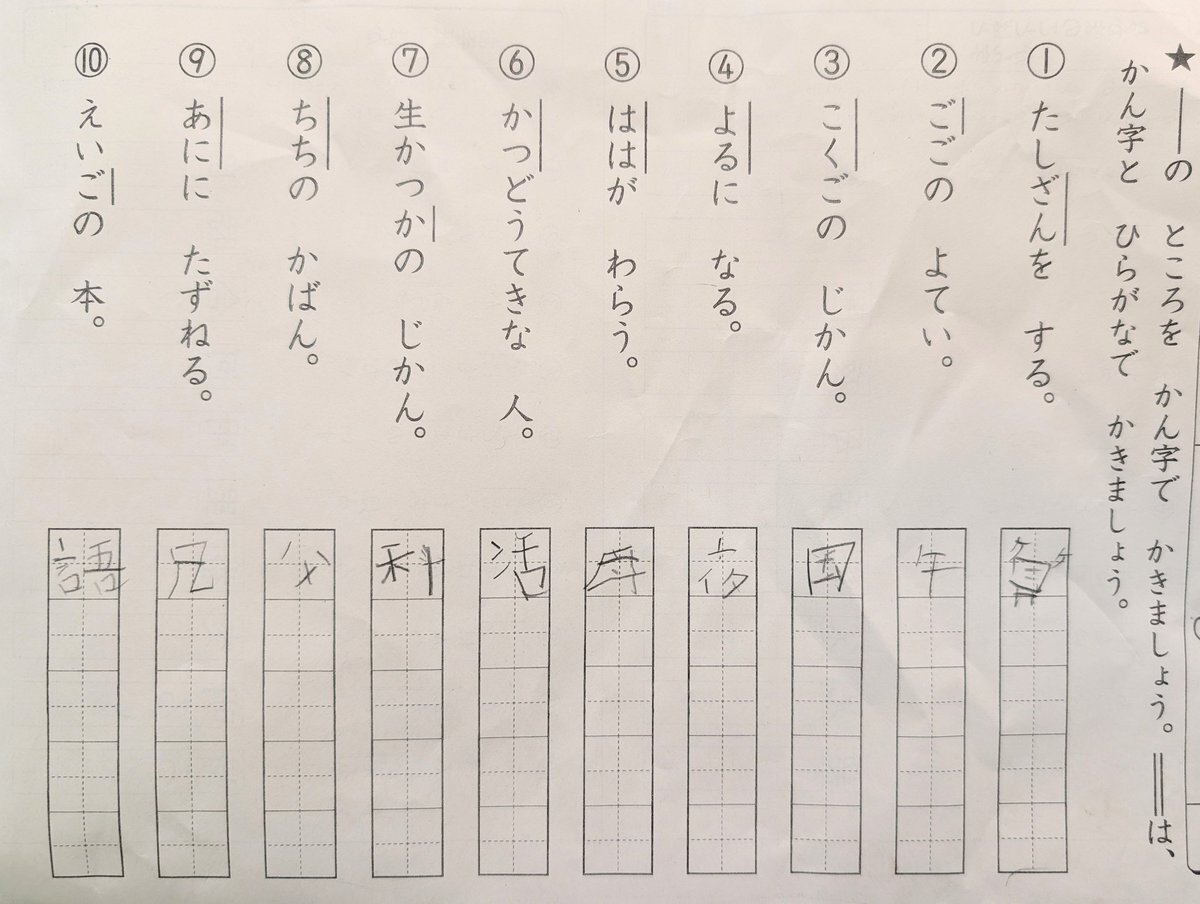 ★――の ところを かん字で かきましょう。══は、
かん字と ひらがなで かきましょう。
① たしざんを する。 算
② ごごの よてい。 午
③ こくごの じかん。 国
④ よるに なる。 夜
⑤ ははが わらう。 母
⑥ かつどうてきな 人。 活
⑦ 生かつかの じかん。 科
⑧ ちちの かばん。 父
⑨ あにに たずねる。 兄
⑩ えいごの 本。 語